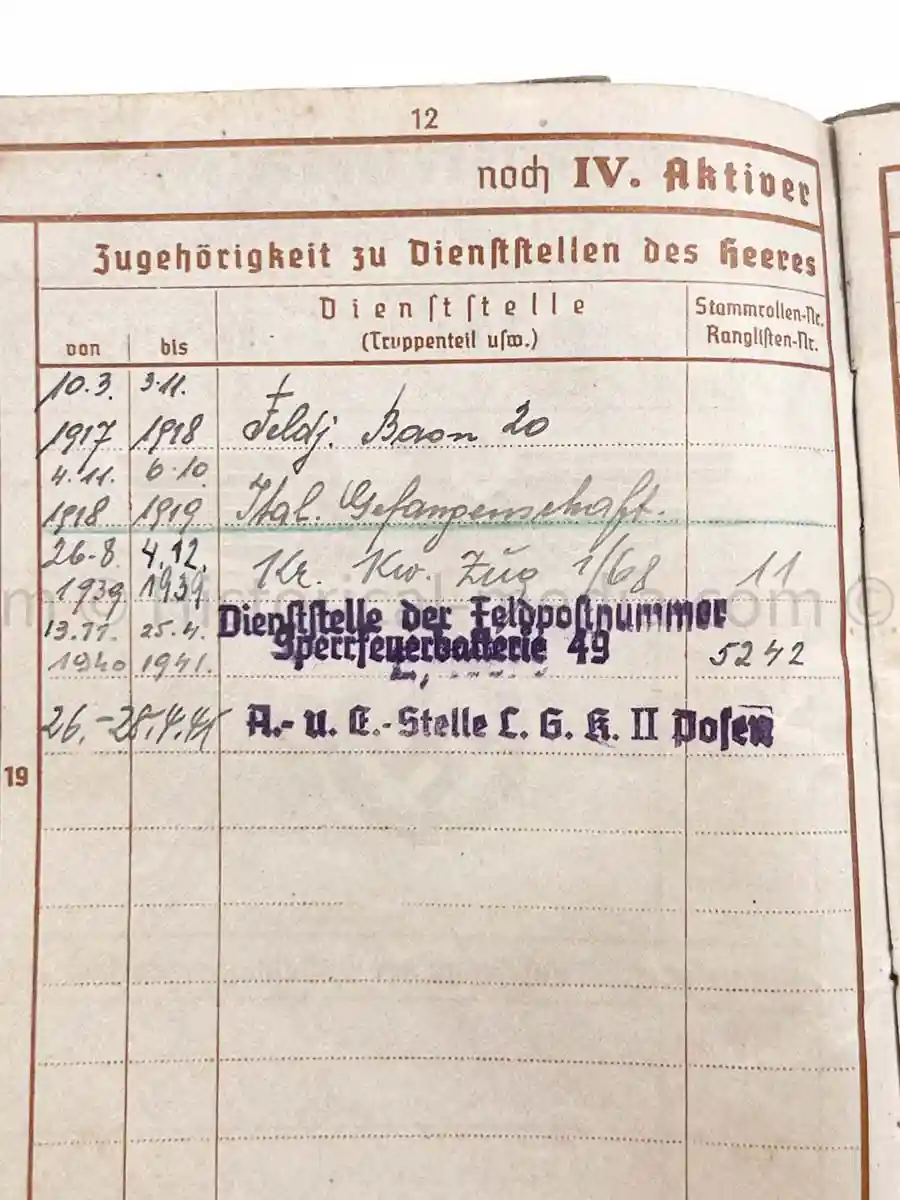 12
noch IV. Aktiver
Zugehörigkeit zu Dienststellen des Heeres
von bis
Dienststelle
(Truppenteil usw.)
Stammrollen-Nr.
Ranglisten-Nr.
10.3. 3.11.
1917 1918 Feldj. Baon 20
4.11. 6.10
1918 1919 Ital. Gefangenschaft.
26.8. 4.12.
1939 1939 Kr. Kw. Zug 1/68 11
Dienststelle der Feldpostnummer
13.11. 25.4. Sperrfeuerbatterie 49
1940 1941. 5242
26.-28.4.41 A.- u. E.-Stelle L. G. K. II Posen
19